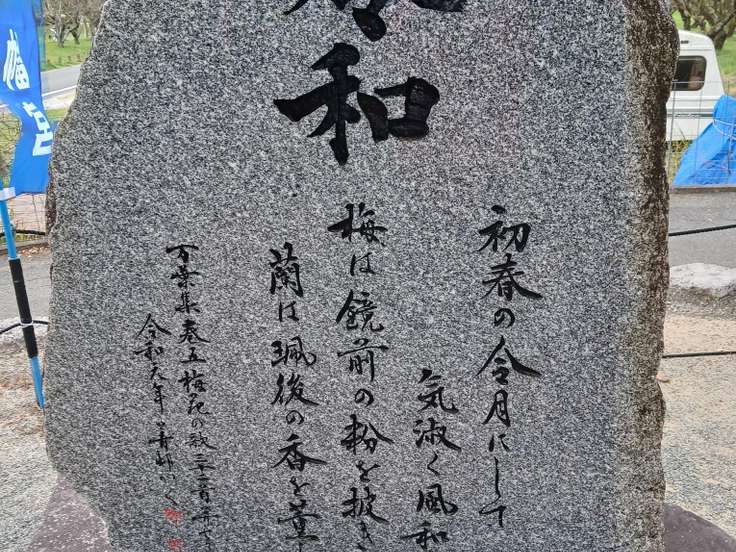 和
初春の令月にして
気淑く風和
梅は鏡前の粉を披き
蘭は珮後の香を薫
万葉集巻五梅花の歌三十二首并せ
令和元年
幡宮